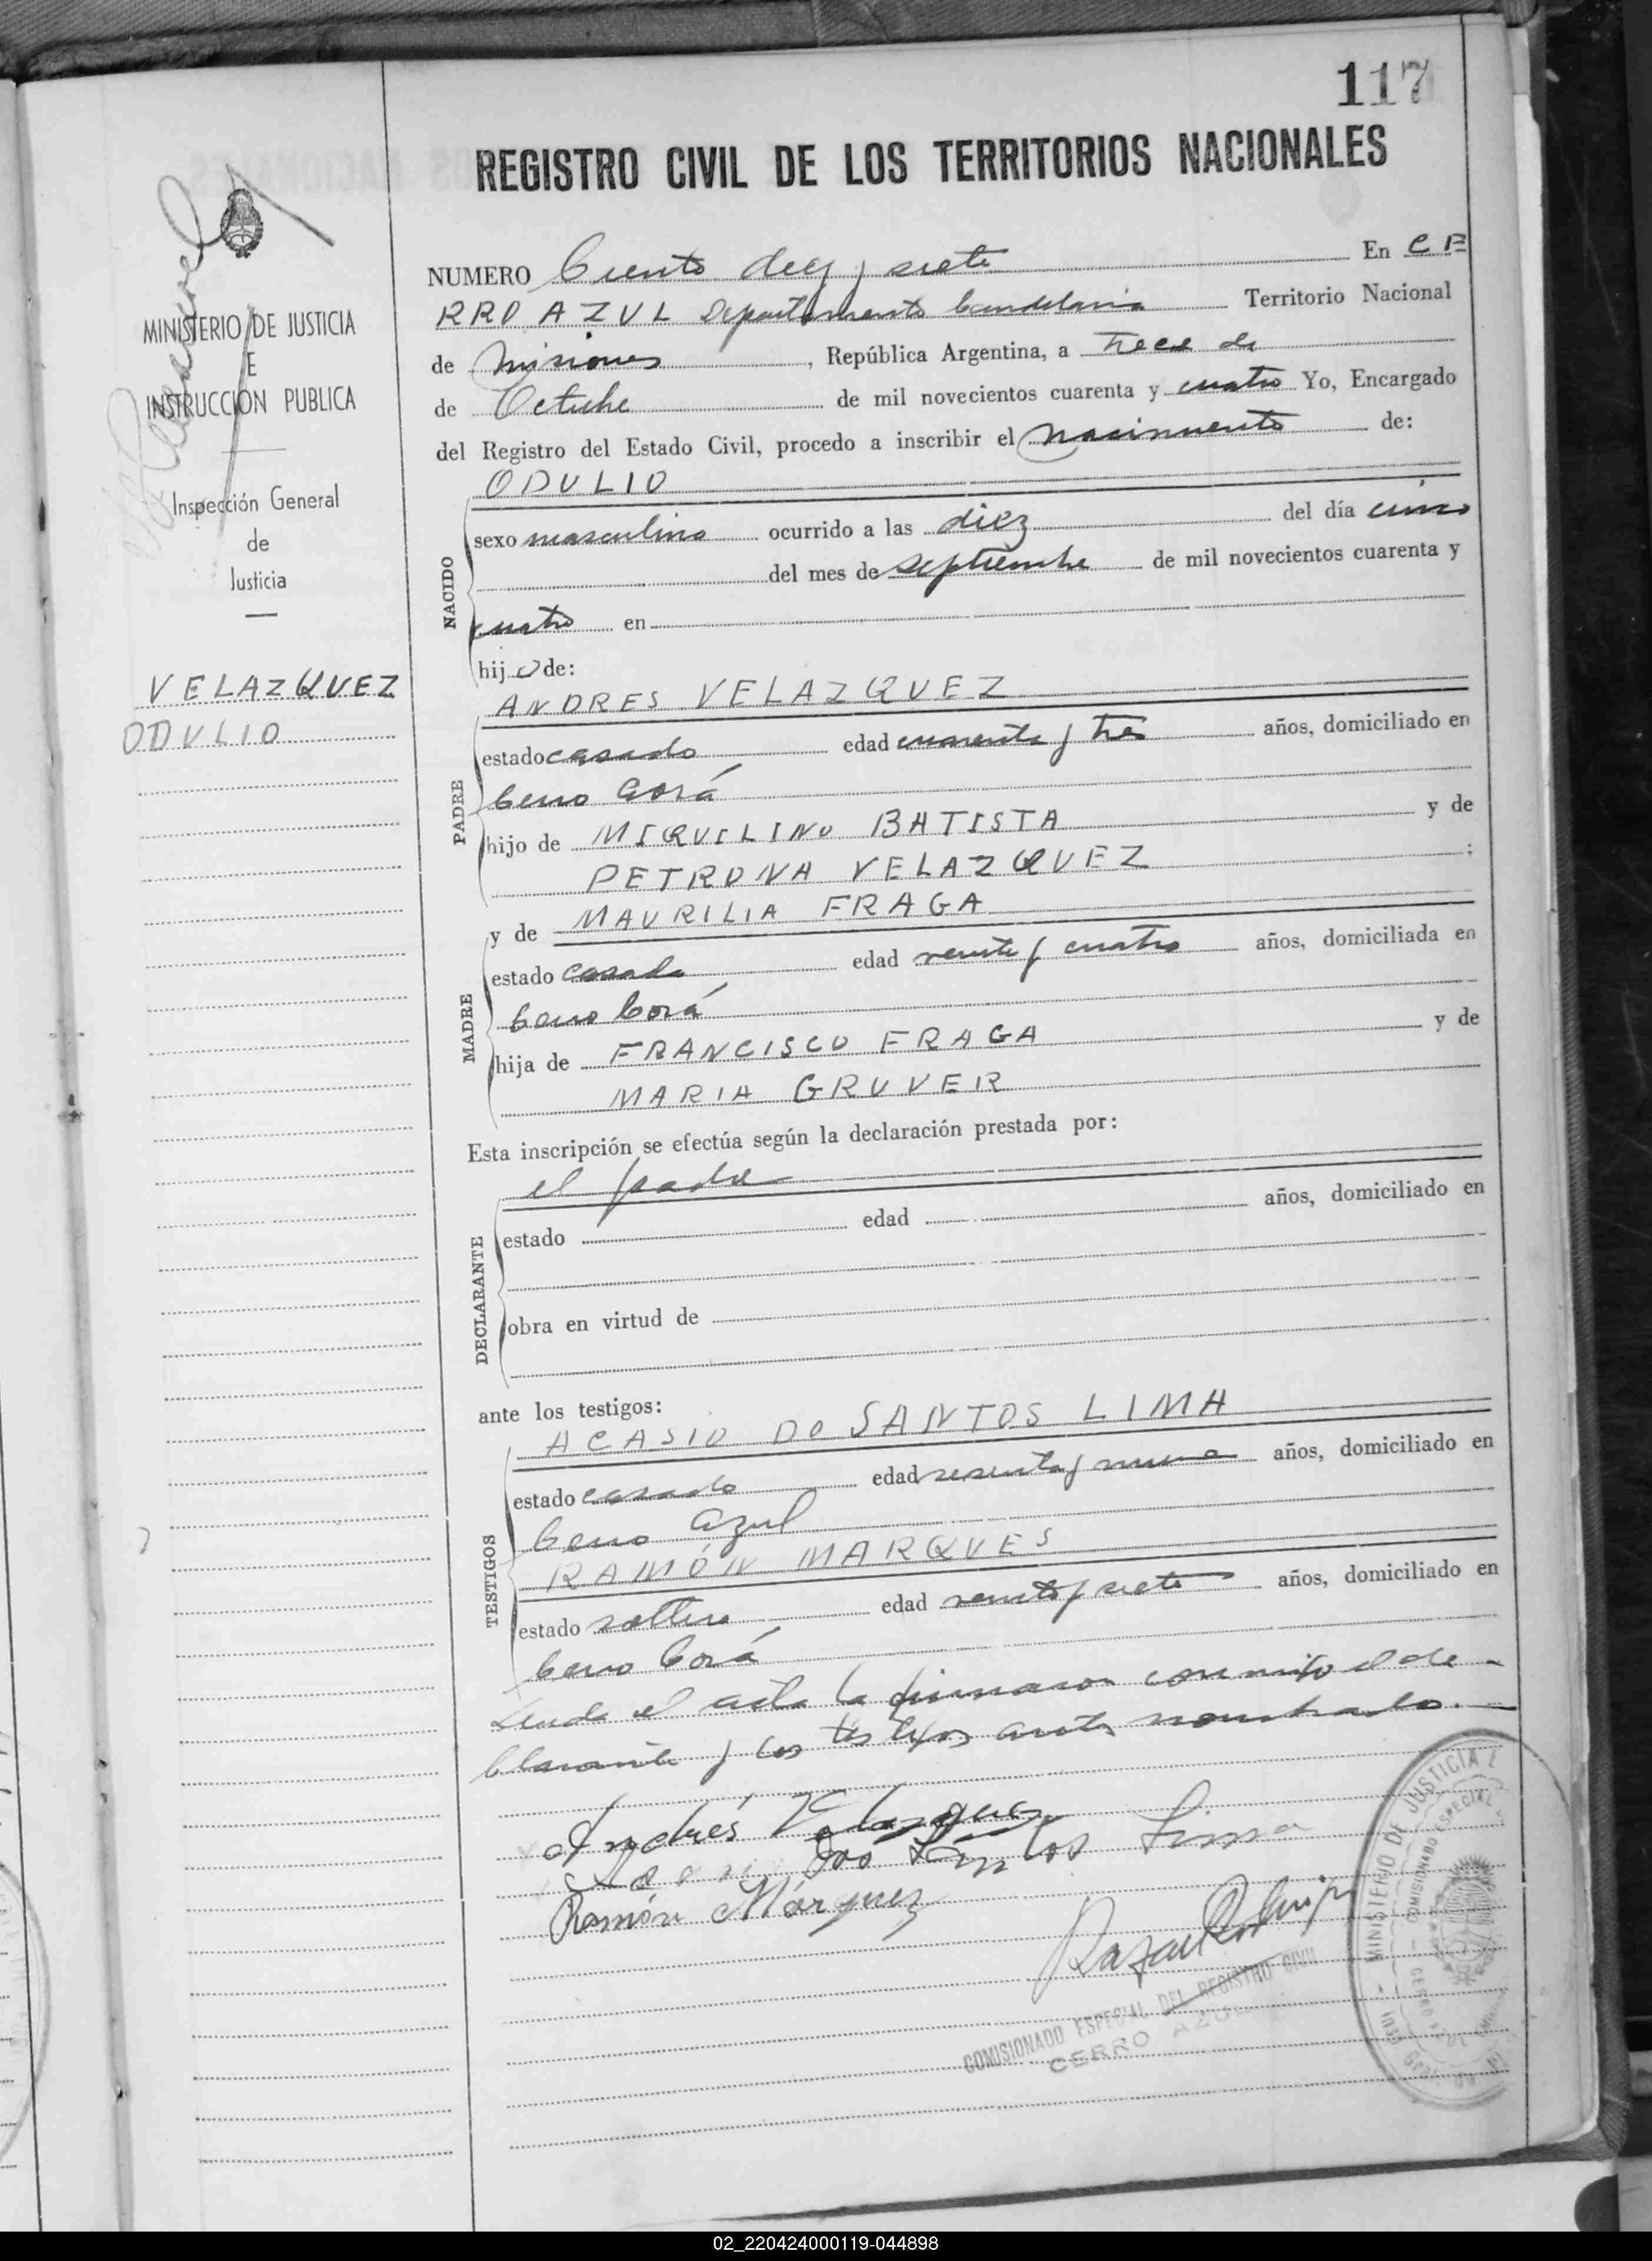 117
REGISTRO CIVIL DE LOS TERRITORIOS NACIONALES
MINISTERIO DE JUSTICIA
E
INSTRUCCIÓN PUBLICA
Inspección General
de
Justicia
VELAZQUEZ
ODULIO
NUMERO Ciento diez y siete En CE
RRO AZUL Departamento Candelaria Territorio Nacional
de Misiones, República Argentina, a trece de
de Octubre de mil novecientos cuarenta y cuatro Yo, Encargado
del Registro del Estado Civil, procedo a inscribir el nacimiento de:
ODULIO
NACIDO
sexo masculino ocurrido a las diez del día cinco
del mes de septiembre de mil novecientos cuarenta y
cuatro en
hijo de:
ANDRES VELAZQUEZ
PADRE
estado casado edad cuarenta y tres años, domiciliado en
Cerro Corá
hijo de MIQUILINO BATISTA y de
PETRONA VELAZQUEZ ;
y de MAURILIA FRAGA
MADRE
estado casada edad veinte y cuatro años, domiciliada en
Cerro Corá
hija de FRANCISCO FRAGA y de
MARIA GRUVER
Esta inscripción se efectúa según la declaración prestada por:
el padre
DECLARANTE
estado edad años, domiciliado en
obra en virtud de
ante los testigos:
ACASIO DO SANTOS LIMA
TESTIGOS
estado casado edad sesenta y nueve años, domiciliado en
Cerro Azul
RAMÓN MARQUES
estado soltero edad veinte y siete años, domiciliado en
Cerro Corá
Leída el acta la firmaron conmigo el de-
clarante y los testigos antes nombrados.—
Andrés Velazquez
Dos Santos Lima
Ramón Márquez
COMISIONADO ESPECIAL DEL REGISTRO CIVIL
CERRO AZUL
MINISTERIO DE JUSTICIA
COMISIONADO ESPECIAL
02_220424000119-044898